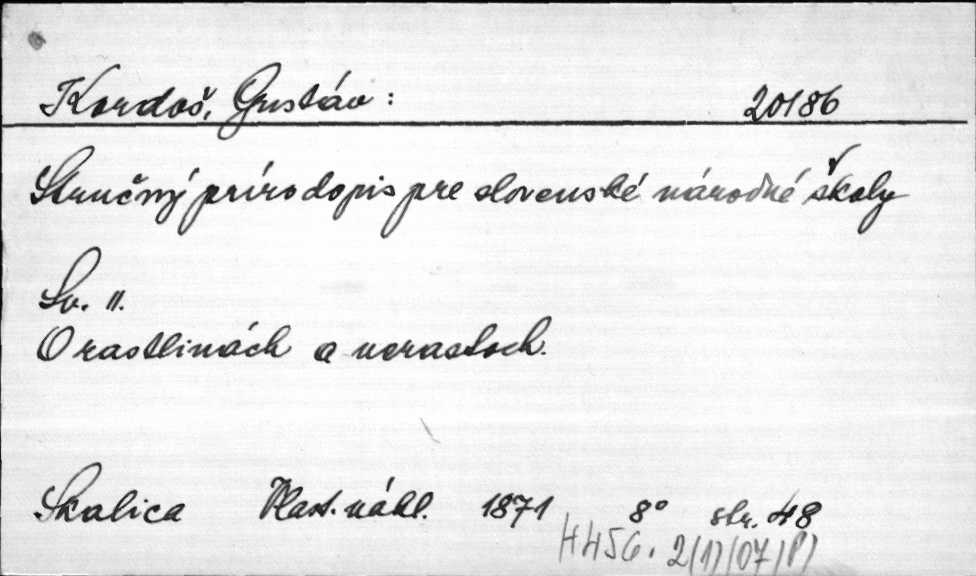 Kordoš, Gustáv: 20186
Stručný prírodopis pre slovenské národné školy
Sv. II.
O rastlinách a nerastoch.
Skalica Vlast. nákl. 1871 8° str. 48
H456.